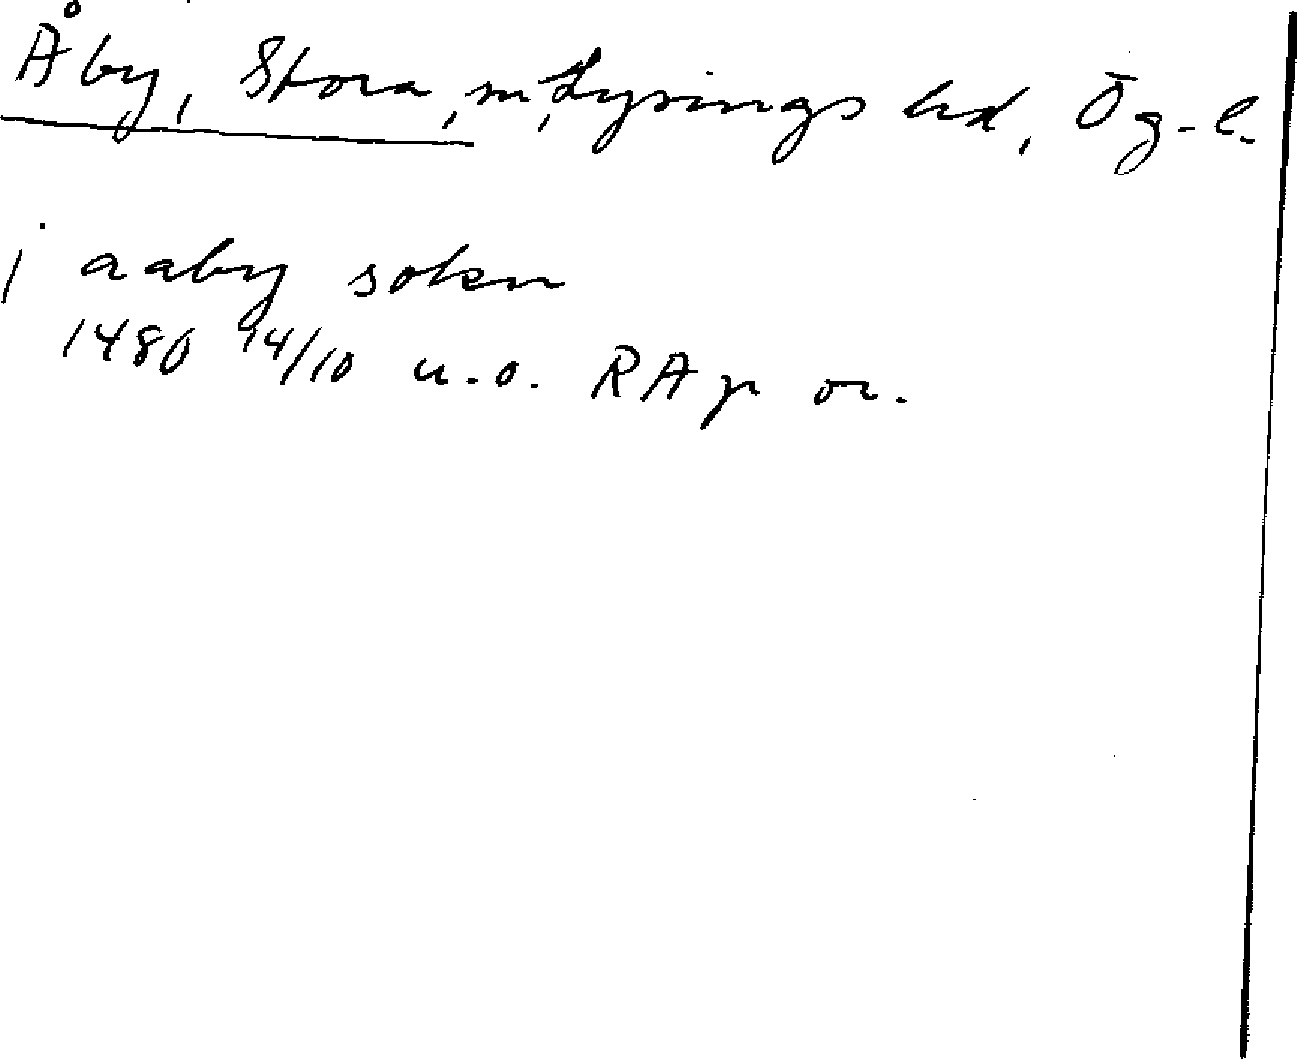 Åby, Stora, sn, Lysings hd, Ög. l.
j aaby sokn
1480 14/10 u.o. RAp or.